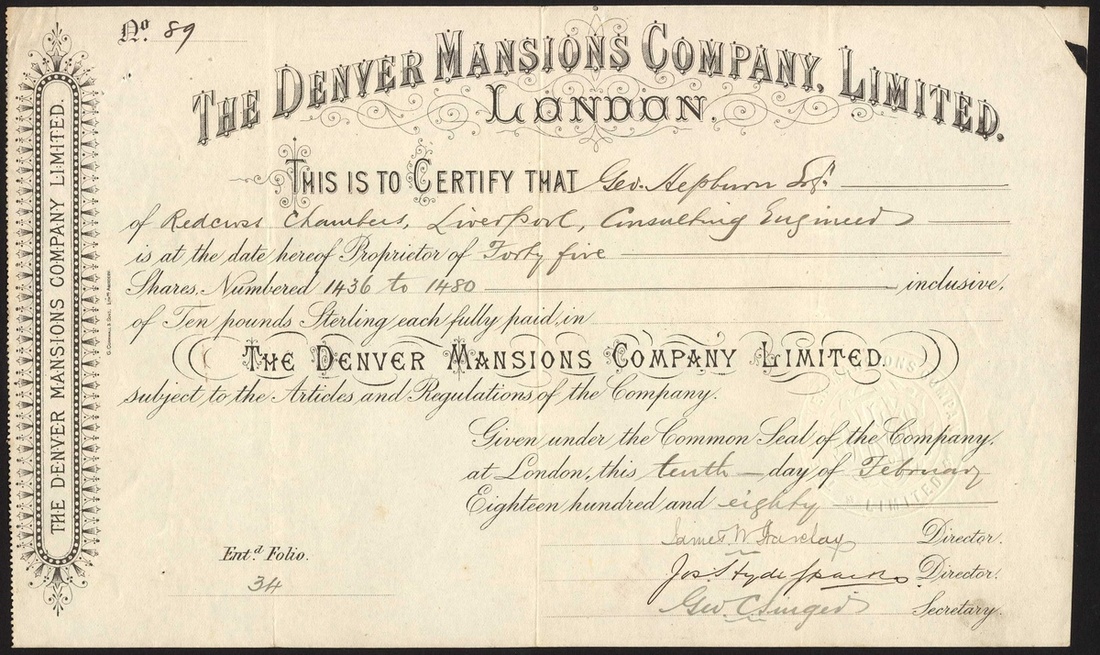 No. 89
THE DENVER MANSIONS COMPANY, LIMITED.
LONDON.
THIS IS TO CERTIFY THAT Geo. Hepburn Esqr.
of Redcross Chambers, Liverpool, Consulting Engineer
is at the date hereof Proprietor of Forty five
Shares, Numbered 1436 to 1480 inclusive,
of Ten pounds Sterling each fully paid, in
THE DENVER MANSIONS COMPANY LIMITED.
subject to the Articles and Regulations of the Company.
Given under the Common Seal of the Company,
at London, this tenth day of February
Eighteen hundred and eighty
James W Barclay Director.
Jos. Hyde Sparks Director.
Geo. C. Secretary.
Entd. Folio.
34
THE DENVER MANSIONS COMPANY LIMITED.